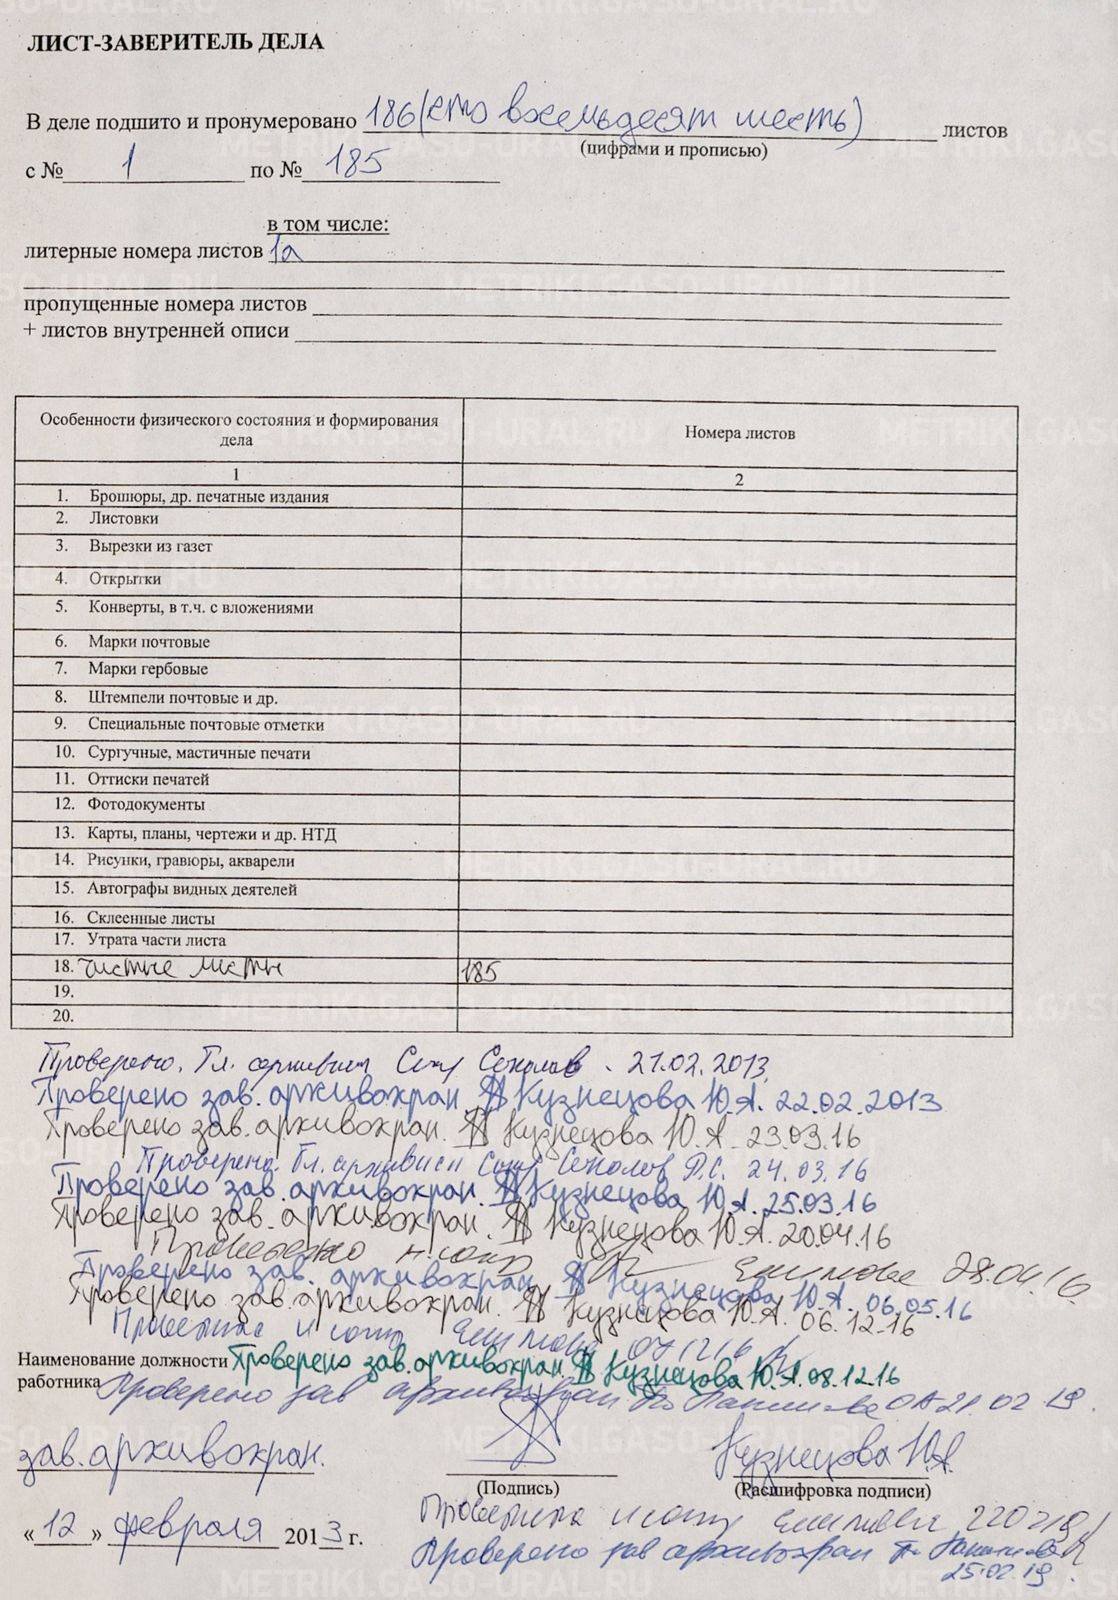 ЛИСТ-ЗАВЕРИТЕЛЬ ДЕЛА
В деле подшито и пронумеровано 186 (сто восемьдесят шесть) листов
(цифрами и прописью)
с № 1 по № 185
в том числе:
литерные номера листов 1а
пропущенные номера листов
+ листов внутренней описи
Особенности физического состояния и формирования дела
Номера листов
1
2
1. Брошюры, др. печатные издания
2. Листовки
3. Вырезки из газет
4. Открытки
5. Конверты, в т.ч. с вложениями
6. Марки почтовые
7. Марки гербовые
8. Штемпели почтовые и др.
9. Специальные почтовые отметки
10. Сургучные, мастичные печати
11. Оттиски печатей
12. Фотодокументы
13. Карты, планы, чертежи и др. НТД
14. Рисунки, гравюры, акварели
15. Автографы видных деятелей
16. Склеенные листы
17. Утрата части листа
18. чистые листы 185
19.
20.
Проверено. Гл. архивист Соколов. 21.02.2013
Проверено зав. архивохран. Кузнецова Ю.А. 22.02.2013
Проверено зав. архивохран. Кузнецова Ю.А. 23.03.16
Проверено. Гл. архивист Соколов Д.С. 24.03.16
Проверено зав. архивохран. Кузнецова Ю.А. 25.03.16
Проверено зав. архивохран. Кузнецова Ю.А. 20.04.16
28.04.16
Проверено зав. архивохран. Кузнецова Ю.А. 06.05.16
Проверено зав. архивохран. Кузнецова Ю.А. 06.12.16
Наименование должности Проверено зав. архивохран. Кузнецова Ю.А. 08.12.16
работника Проверено зав архивохран 21.02.19.
зав. архивохран. Кузнецова Ю.А.
(Подпись) (Расшифровка подписи)
«12» февраля 2013 г.
Проверено зав архивохран
25.02.19.
METRIKI.GASO-URAL.RU